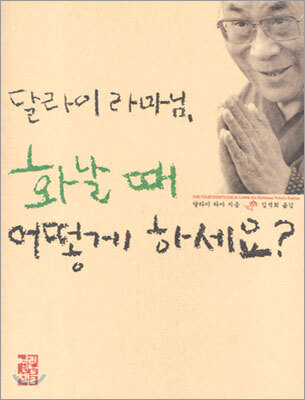 달라이 라마님,
화날 때
THE FOURTEENTH DALAI LAMA HIS HOLINESS TENZIN GYATSO
달라이 라마 지음 김석희 옮김
어떻게 하세요?